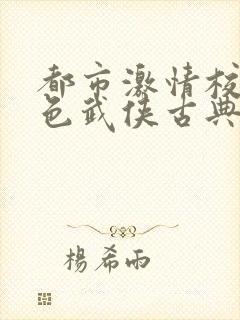 都市激情校
色武侠古典
楊希雨